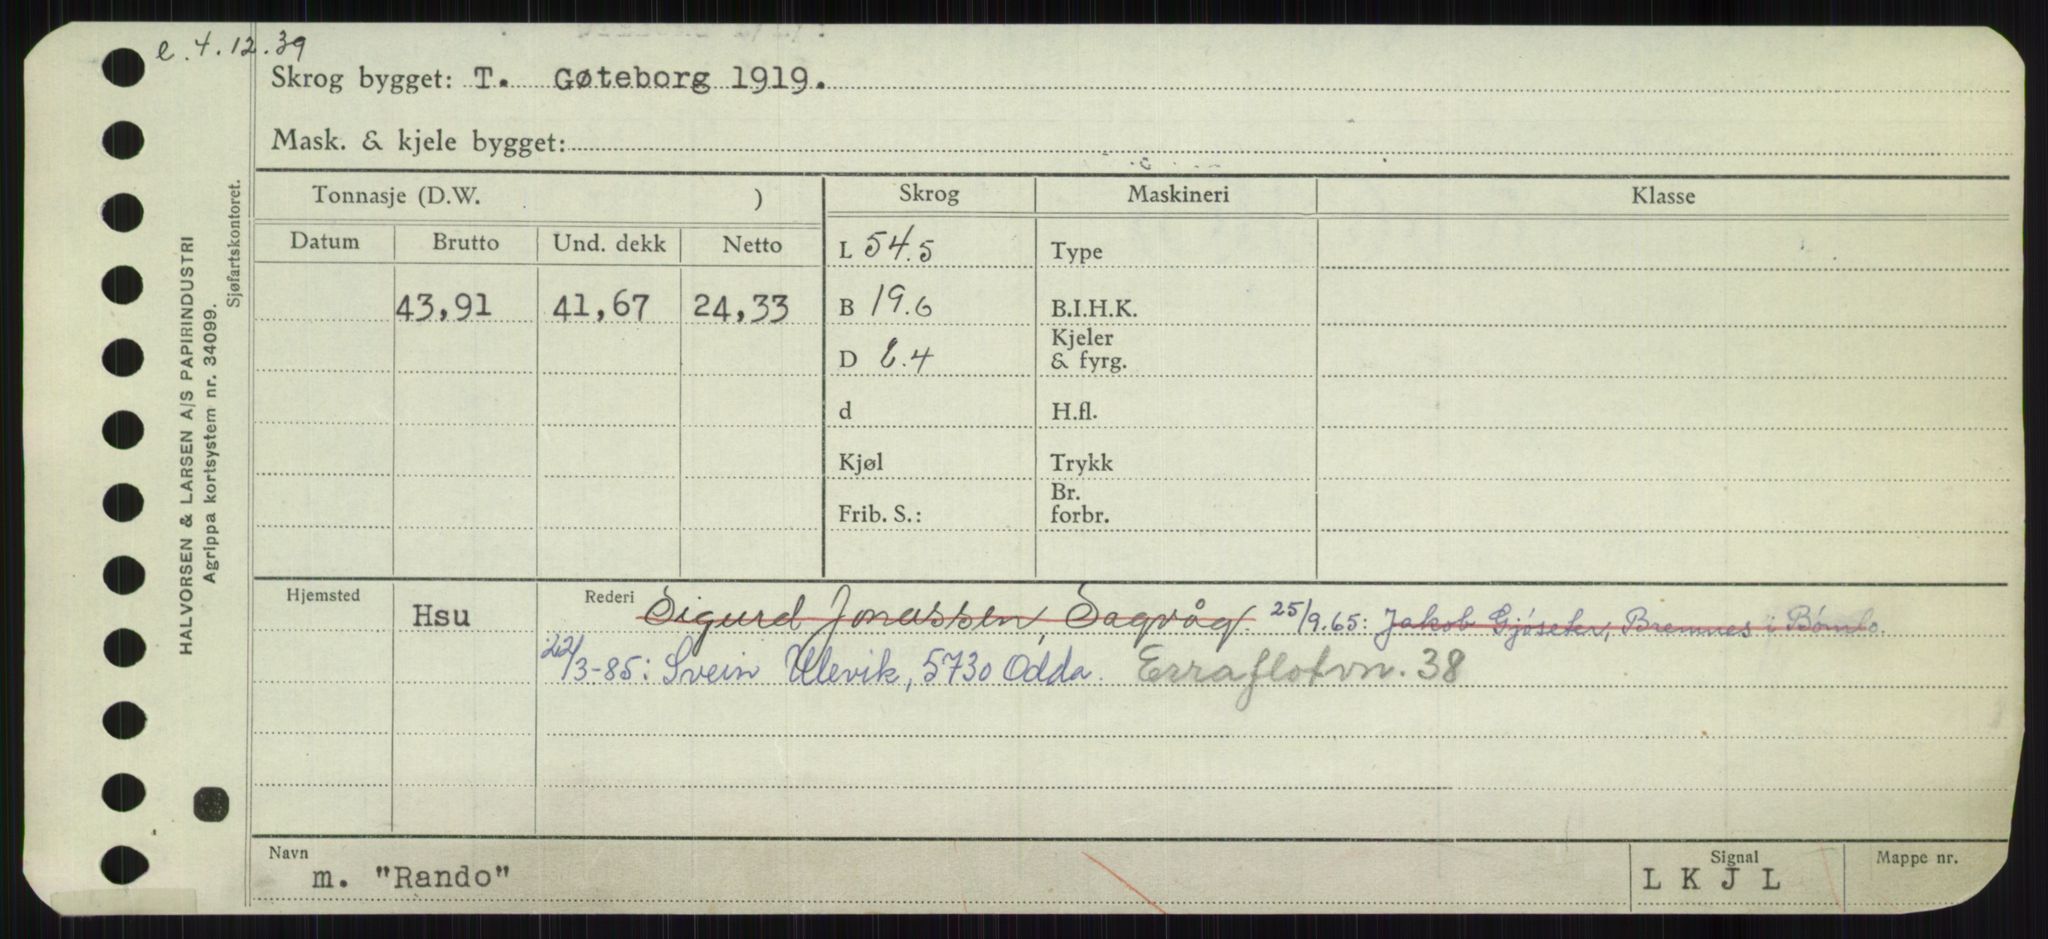 e. 4.12.39
Skrog bygget: T. Gøteborg 1919.
Mask. & kjele bygget:
Tonnasje (D.W. ) Skrog Maskineri Klasse
Datum Brutto Und. dekk Netto L 54.5 Type
43,91 41,67 24,33 B 19.6 B.I.H.K.
D 6.4 Kjeler & fyrg.
d H.fl.
Kjøl Trykk
Frib. S.: Br. forbr.
Hjemsted Hsu Rederi Sigurd Jonassen, Sagvåg. 25/9.65: Jakob Gjøseter, Bremnes i Bømlo.
22/3-85: Svein Ulevik, 5730 Odda. Erraflotvn. 38
Navn m. "Rando" Signal L K J L Mappe nr.
HALVORSEN & LARSEN A/S PAPIRINDUSTRI
Agrippa kortsystem nr. 34099.
Sjøfartskontoret.